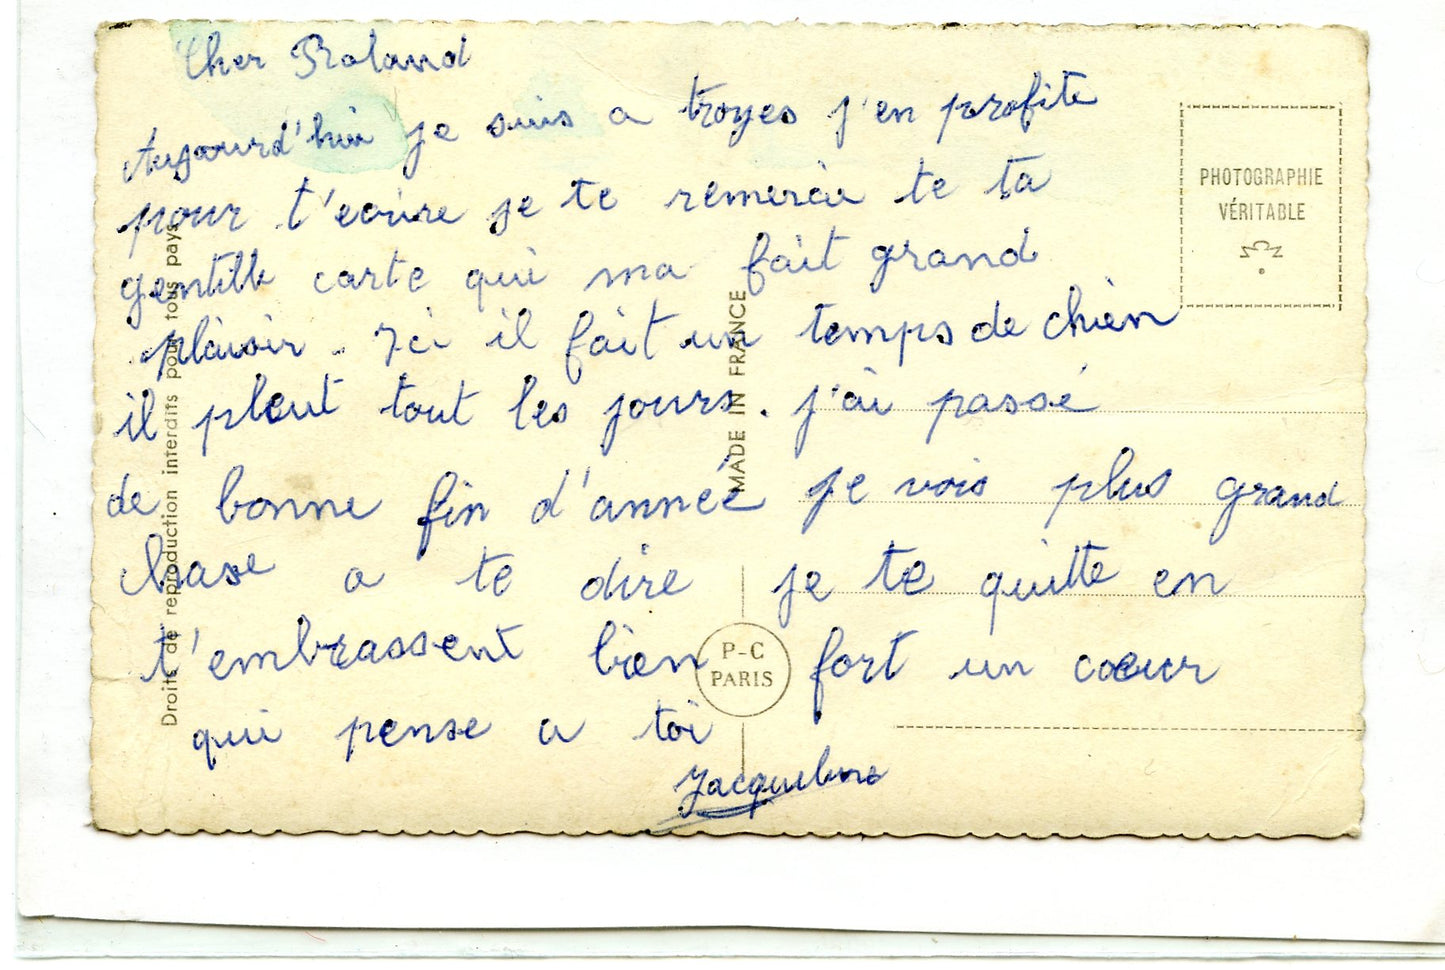 Cher Roland
Aujourd'hui je suis a troyes j'en profite
pour t'ecrire je te remercie te ta
gentille carte qui ma fait grand
plaisir. Ici il fait un temps de chien
il pleut tout les jours. j'ai passé
de bonne fin d'année je vois plus grand
chose a te dire je te quitte en
t'embrassent bien fort un coeur
qui pense a toi
Jacqueline
PHOTOGRAPHIE
VÉRITABLE
Droits de reproduction interdits pour tous pays
MADE IN FRANCE
P-C
PARIS